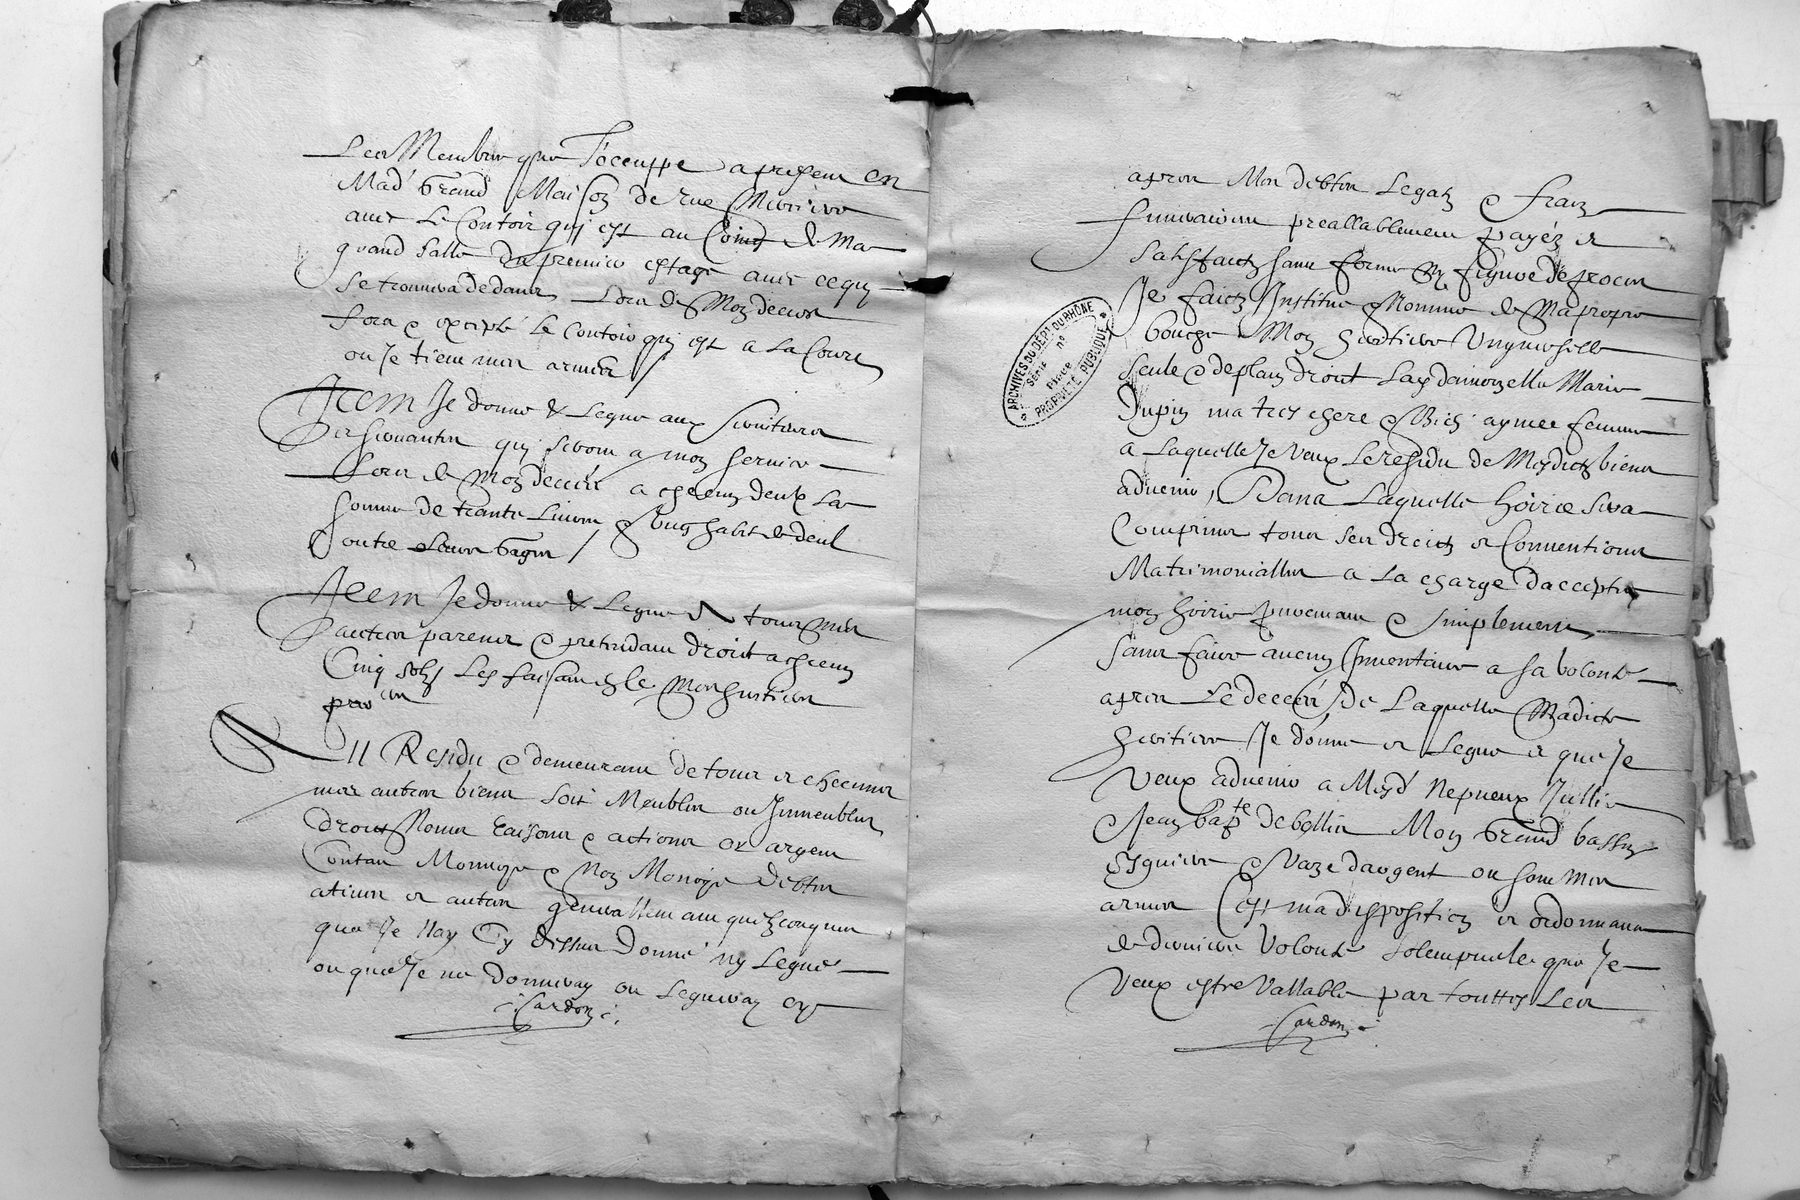 Les Meubles que J'occuppe a present en
Mad' Grand Maison de rue Merciere
avec Le Contoir quj est au Coing de Ma
grand salle du premier estage avec ce qu
se trouvera dedans Lors de Mon deces
fors & excepté le contoir quj est a La Court
ou Je tiens mes armes
Item Je donne & Legue aux serviteurs
et servantes quj seront a mon service
Lors de Mon deces a chacun deux La
somme de trante Livres & Ung habit de deul
outre Leurs Gages
Item Je donne & Legue A tous mes
autres parens & pretendans droit a chacun
Cinq solz Les faisant de Mes heritiers
Du Residu & demeurant de tous et chacuns
mes autres biens soit Meubles ou Jmmeubles
droits Noms raisons & actions or argent
Contant Monnoye & Non Monoye debtes
actives et autres generallement quelconques
que Je nay Cy dessus donné ny Legué
ou que Je ne donneray ou Legueray cy
Cardon
apres Mes debtes Legatz & frais
funeraires preallablement payéz et
satisfaictz sans forme Ny figure de proces
Je faictz Jnstitue & Nomme de Ma propre
bouche Mon heritiere Unyverselle
seule & de plain droit Lad damoyzelle Marie
Dupin ma tres chere & Bien aymee femme
a Laquelle Je veux Le residu de Mesdictz biens
advenir, Dans Laquelle hoirie sera
Comprins tous ses droictz et Conventions
Matrimonialles a La charge d'accepter
mon hoirie purement & simplement
sans faire aucun Jnventaire a sa volonté
apres Le deces de Laquelle Madicte
heritiere Je donne et Legue et que Je
veux advenir a Mesd Nepveux Jullie
& Jean bapte de bellin Mon Grand bassin
Esguiere & Vaze d'argent ou sont Mes
armes C'est ma disposition et ordonnance
de derniere Volonté solempnelle que Je
veux estre Vallable par touttes Les
Cardon
ARCHIVES DU DÉPT. DU RHÔNE
Série nº
Pièce
PROPRIÉTÉ PUBLIQUE